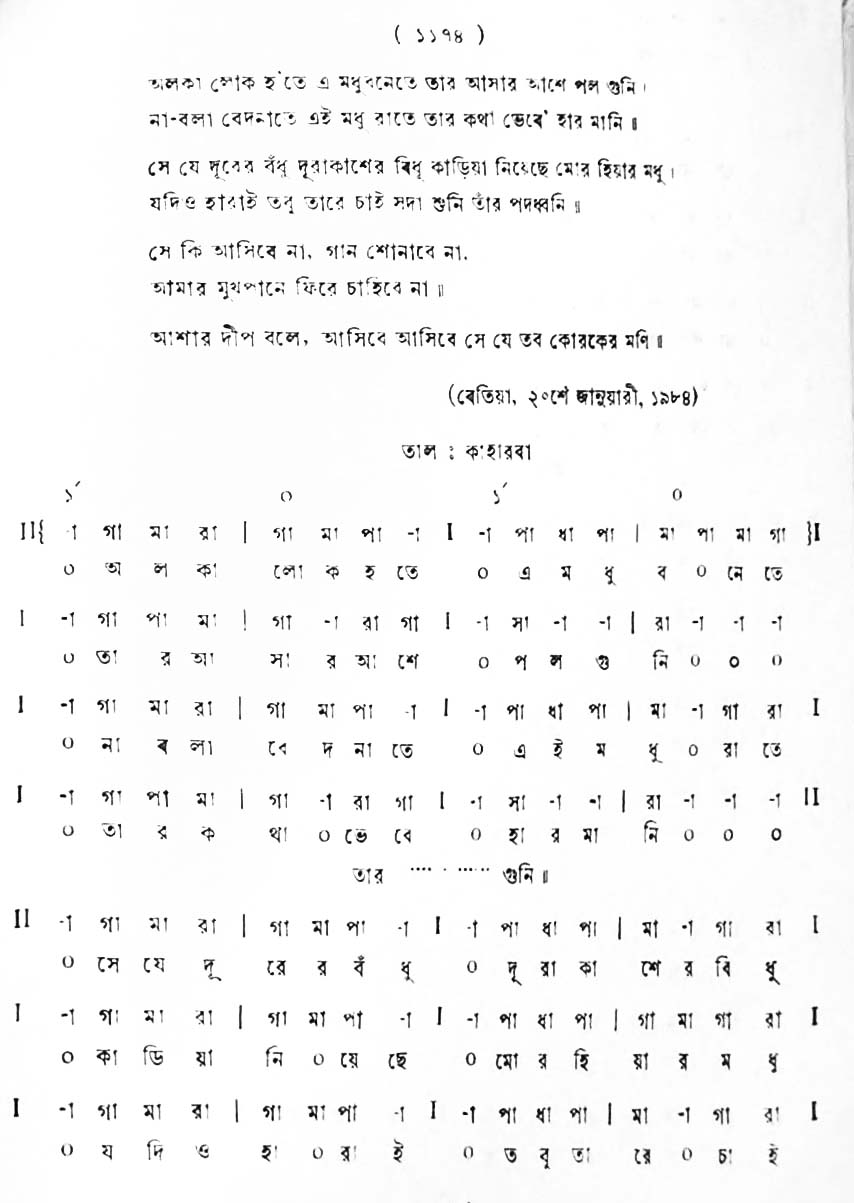 ( ১১৭৪ )
অলকা লোক হ'তে এ মধুবনেতে তার আসার আশে পল গুনি।
না-বলা বেদনাতে এই মধু রাতে তার কথা ভেবে' হার মানি॥
সে যে দূরের বঁধু দূরাকাশের বিধু কাড়িয়া নিয়েছে মোর হিয়ার মধু।
যদিও হারাই তবু তারে চাই সদা শুনি তাঁর পদধ্বনি॥
সে কি আসিবে না, গান শোনাবে না,
আমার মুখপানে ফিরে চাহিবে না॥
আশার দীপ বলে, আসিবে আসিবে সে যে তব কোরকের মণি॥
(বেতিয়া, ২০শে জানুয়ারী, ১৯৮৪)
তাল : কাহারবা
১´ ০ ১´ ০
II{ -া গা মা রা | গা মা পা -া I -া পা ধা পা | মা পা মা গা }I
০ অ ল কা লো ক হ তে ০ এ ম ধু ব ০ নে তে
I -া গা পা মা | গা -া রা গা I -া সা -া -া | রা -া -া -া
০ তা র আ সা র আ শে ০ প ল গু নি ০ ০ ০
I -া গা মা রা | গা মা পা -া I -া পা ধা পা | মা -া গা রা I
০ না ব লা বে দ না তে ০ এ ই ম ধু ০ রা তে
I -া গা পা মা | গা -া রা গা I -া সা -া -া | রা -া -া -া II
০ তা র ক থা ০ ভে বে ০ হা র মা নি ০ ০ ০
তার ···· · ······ গুনি॥
II -া গা মা রা | গা মা পা -া I -া পা ধা পা | মা -া গা রা I
০ সে যে দূ রে র বঁ ধু ০ দূ রা কা শে র বি ধু
I -া গা মা রা | গা মা পা -া I -া পা ধা পা | গা মা গা রা I
০ কা ড়ি য়া নি ০ য়ে ছে ০ মো র হি য়া র ম ধু
I -া গা মা রা | গা মা পা -া I -া পা ধা পা | মা -া গা রা I
০ য দি ও হা ০ রা ই ০ ত বু তা রে ০ চা ই